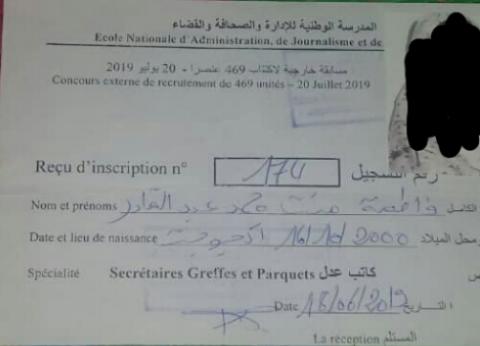 المدرسة الوطنية للإدارة والصحافة والقضاء
Ecole Nationale d'Administration, de Journalisme et de
مسابقة خارجية لاكتتاب 469 عنصرا - 20 يوليو 2019
Concours externe de recrutement de 469 unités – 20 Juillet 2019
Reçu d'inscription n° 174 رقم التسجيل
Nom et prénoms فاطمة منت محمد عبد القادر الكامل
Date et lieu de naissance 2000 اكجوجت ومحل الميلاد
Spécialité Secrétaires Greffes et Parquets كاتب عدل
Date 18/06/2019 التاريخ
La réception المستلم